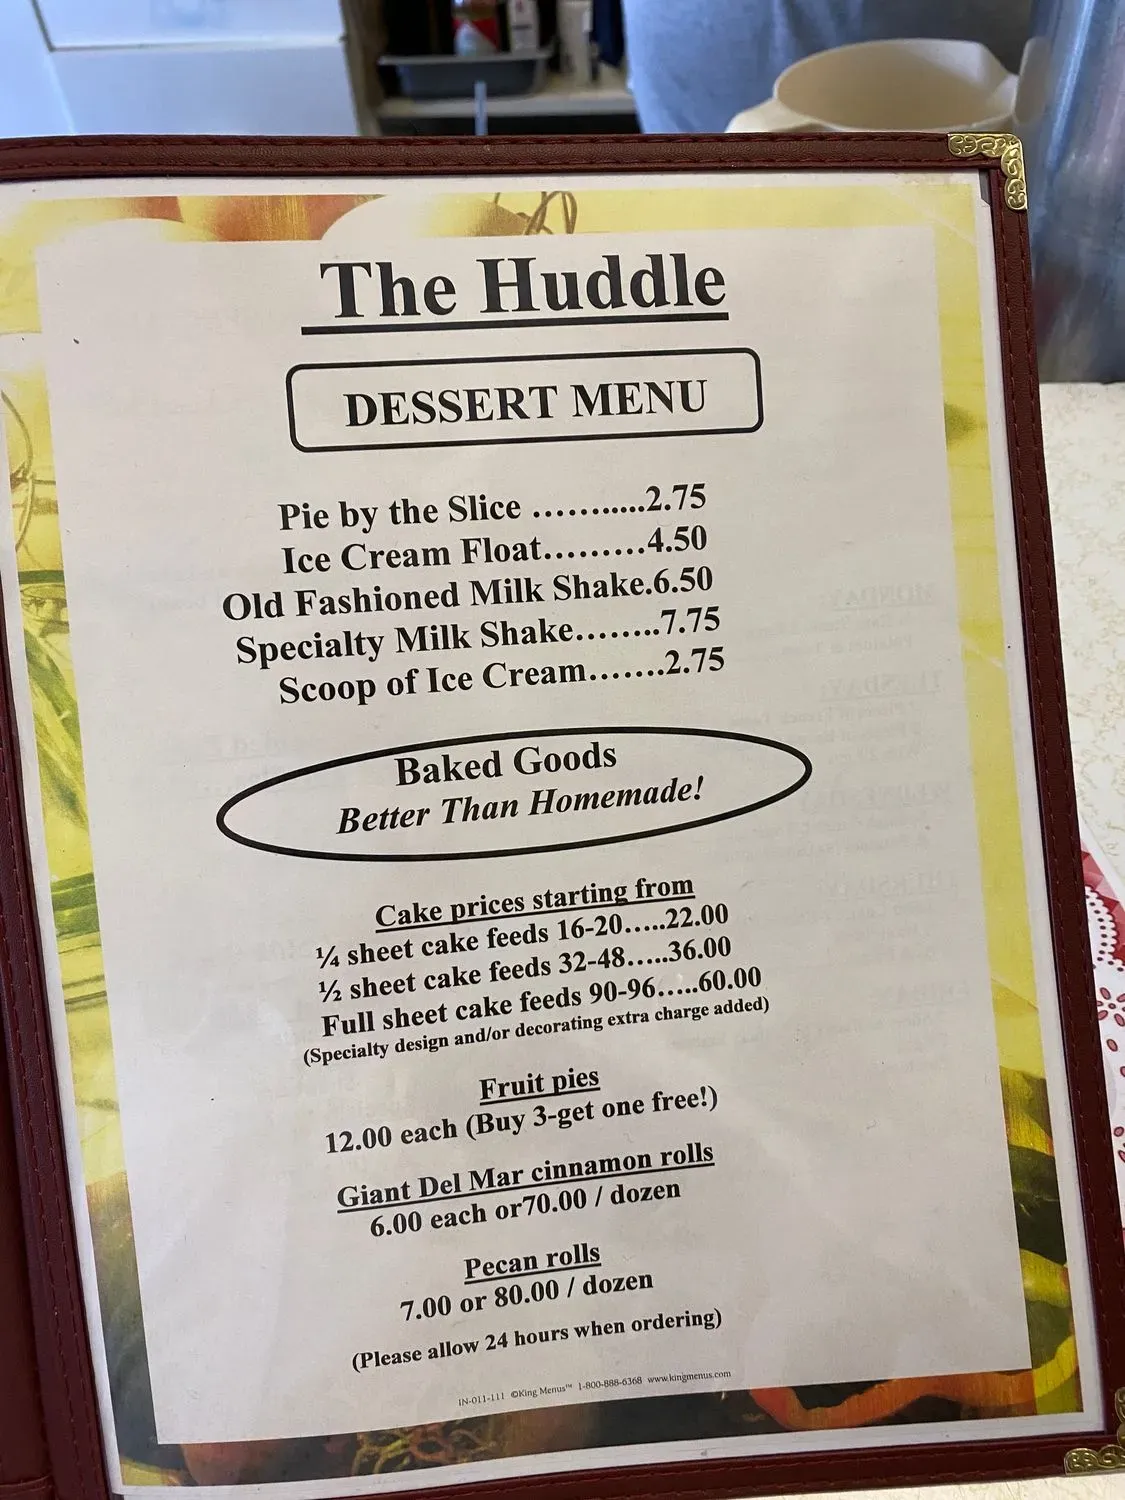 The Huddle
DESSERT MENU
Pie by the Slice ...........2.75
Ice Cream Float.........4.50
Old Fashioned Milk Shake.6.50
Specialty Milk Shake........7.75
Scoop of Ice Cream.......2.75
Baked Goods
Better Than Homemade!
Cake prices starting from
¼ sheet cake feeds 16-20.....22.00
½ sheet cake feeds 32-48.....36.00
Full sheet cake feeds 90-96.....60.00
(Specialty design and/or decorating extra charge added)
Fruit pies
12.00 each (Buy 3-get one free!)
Giant Del Mar cinnamon rolls
6.00 each or70.00 / dozen
Pecan rolls
7.00 or 80.00 / dozen
(Please allow 24 hours when ordering)
IN-011-111 ©King Menus™ 1-800-888-6368 www.kingmenus.com